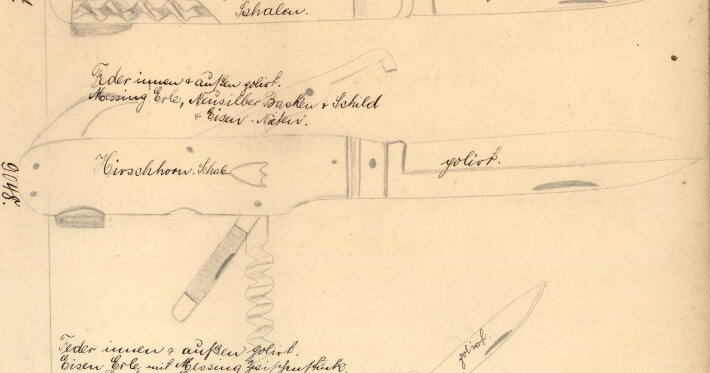 Schalen.
Feder innen & außen polirt.
Messing Erle, Neusilber Backen & Schild
& Eisen-Nieten.
Hirschhorn. Schal
polirt.
9048.
Feder innen & außen polirt.
Eisen Erle mit Messing
polirt.